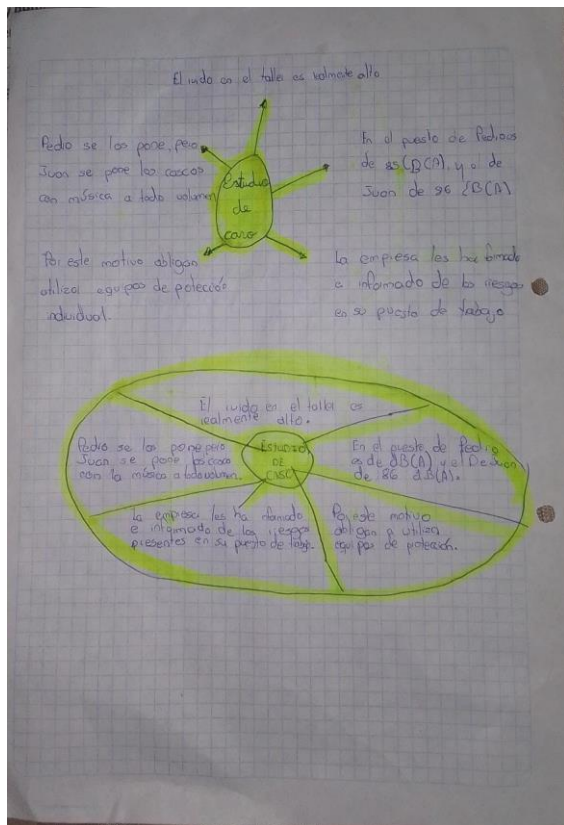 El ruido en el taller es realmente alto
Pedro se los pone, pero
Juan se pone los cascos
con música a todo volumen
En el puesto de Pedro es
de 85 (BCA), y o de
Juan de 96 dB(A)
Estudio
de
caso
Por este motivo obligan
utilizar equipos de protección
individual.
La empresa les ha formado
e informado de los riesgos
en su puesto de trabajo
El ruido en el taller es
realmente alto.
Pedro se los pone pero
Juan se pone los cascos
con la música a todo volumen.
Estudio
DE
CASO
En el puesto de Pedro
es de dB(A) y el De Juan
de 86 dB(A).
La empresa les ha formado
e informado de los riesgos
presentes en su puesto de trabajo.
Por este motivo
obligan a utiliza
equipos de protección.